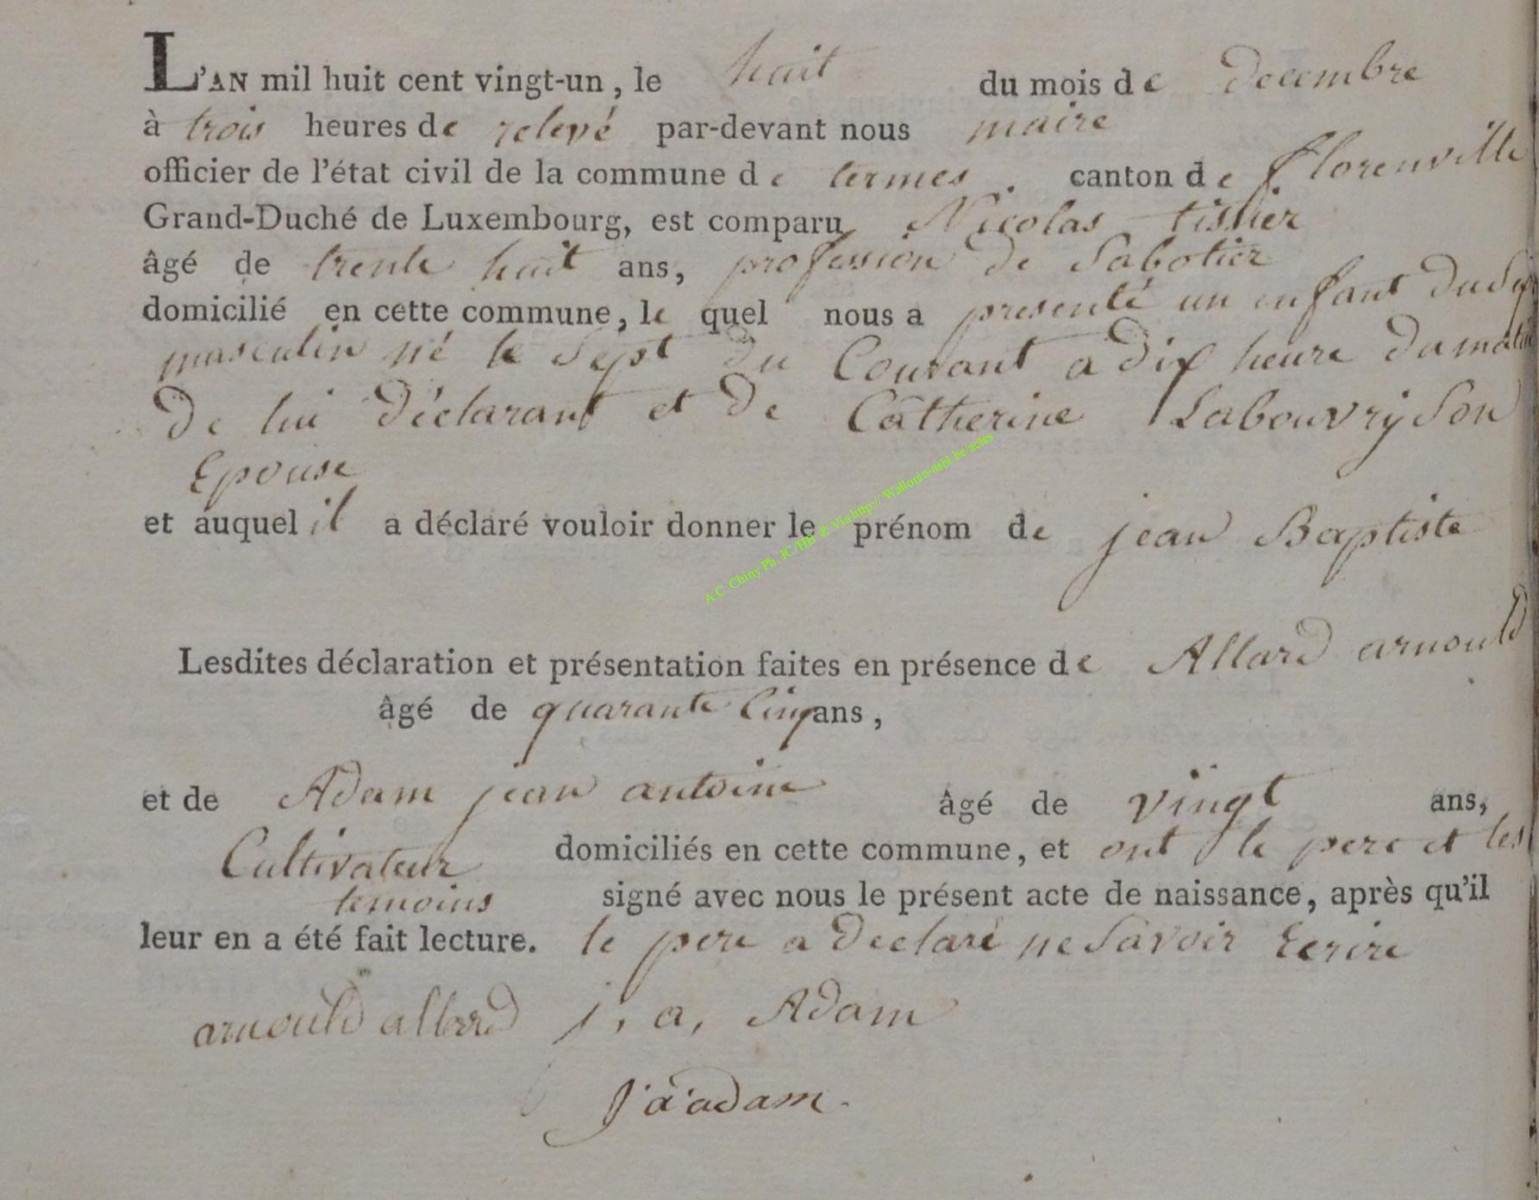 L'AN mil huit cent vingt-un, le huit du mois de decembre
à trois heures de relevé par-devant nous maire
officier de l'état civil de la commune de termes. canton de florenville
Grand-Duché de Luxembourg, est comparu Nicolas tissier
âgé de trente huit ans, profession de Sabotier
domicilié en cette commune, le quel nous a presenté un enfant du Sex
masculin né le Sept du Courant a dix heure du matin
De lui déclarant et de Catherine Labouvrÿ Son
Epouse
et auquel il a déclaré vouloir donner le prénom de jean Baptiste
Lesdites déclaration et présentation faites en présence de Allard arnould
âgé de quarante Cinq ans,
et de Adam jean antoine âgé de vingt ans,
Cultivateur domiciliés en cette commune, et ont le pere et les
temoins signé avec nous le présent acte de naissance, après qu'il
leur en a été fait lecture. le pere a declaré ne Savoir Ecrire
arnould allard j, a, Adam
J a adam.
A.C. Chiny Ph. JC/HB & Via http://